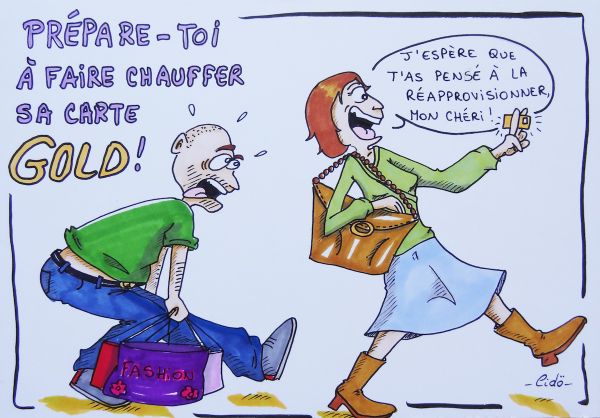 PRÉPARE-TOI
À FAIRE CHAUFFER
SA CARTE
GOLD!
J'ESPÈRE QUE
T'AS PENSÉ À LA
RÉAPPROVISIONNER,
MON CHÉRI!
FASHION
-Lidö-